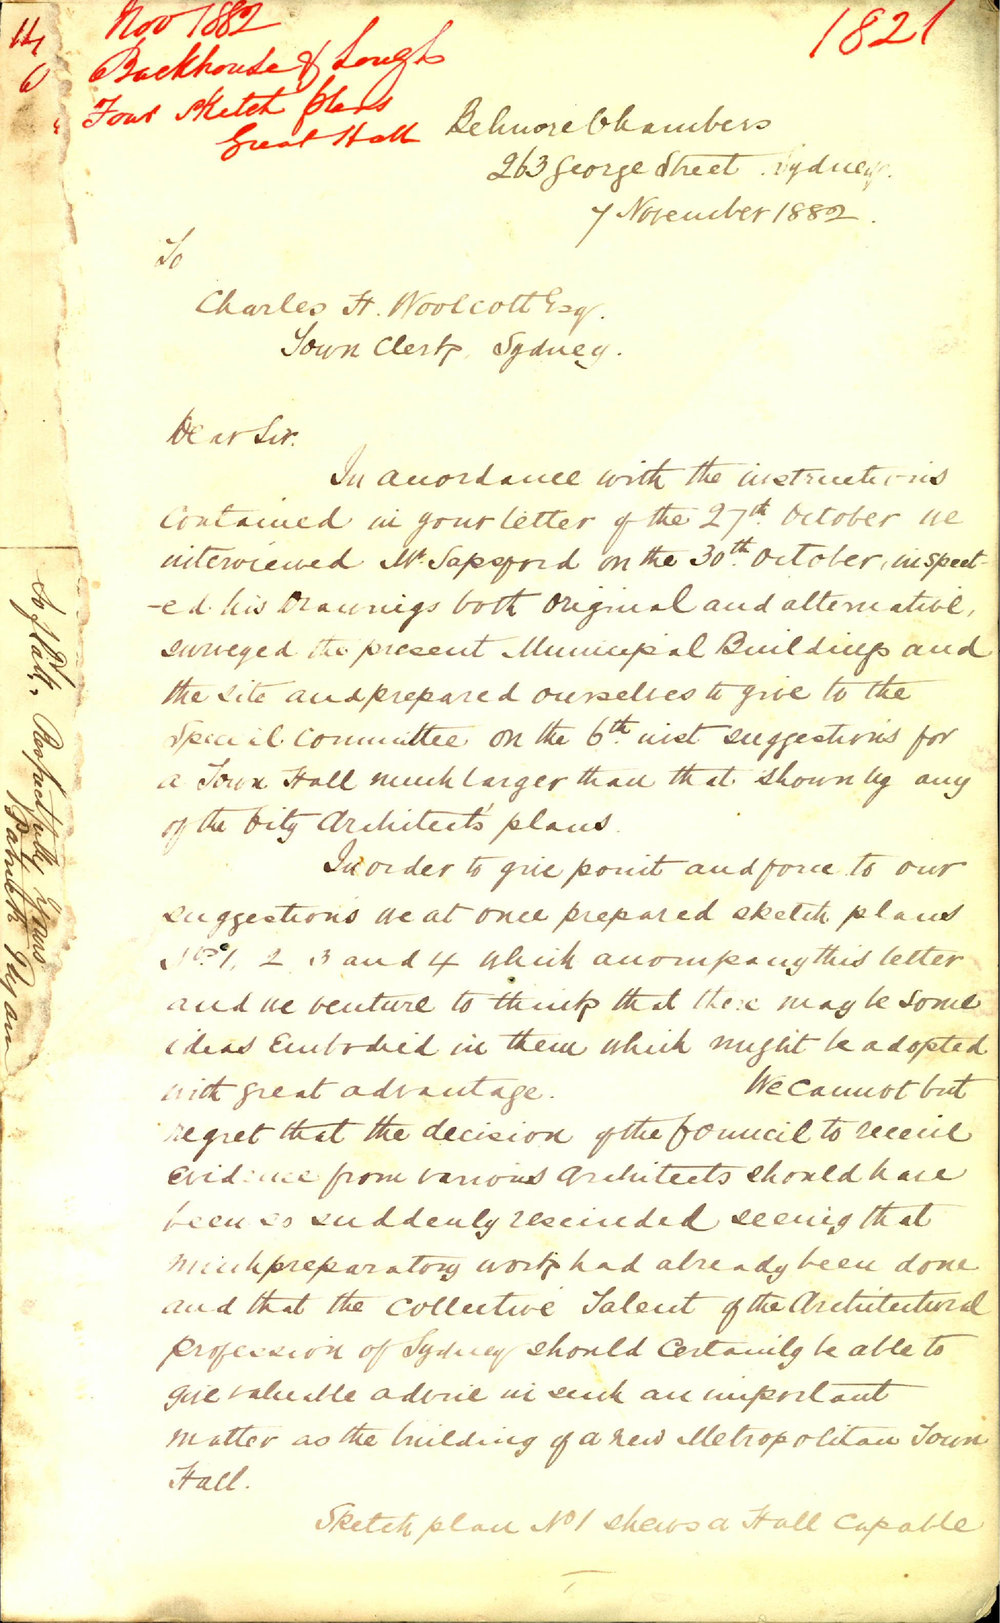 Nov 1882
Backhouse & Lough
Four Sketch plans
Great Hall
1821
Belmore Chambers
263 George Street Sydney.
7 November 1882.
To
Charles H. Woolcott Esq.
Town Clerk, Sydney.
Dear Sir.
In accordance with the instructions
contained in your letter of the 27th October we
interviewed Mr. Sapsford on the 30th October, inspect-
-ed his Drawings both original and alternative,
surveyed the present Municipal Buildings and
the site and prepared ourselves to give to the
Special Committee on the 6th inst suggestions for
a Town Hall much larger than that shown by any
of the City Architect's plans.
In order to give point and force to our
suggestions we at once prepared sketch plans
No. 1, 2 3 and 4 which accompany this letter
and we venture to think that there may be some
ideas Embodied in them which might be adopted
with great advantage. We cannot but
regret that the decision of the Council to receive
evidence from various Architects should have
been so suddenly rescinded seeing that
much preparatory work had already been done
and that the Collective Talent of the Architectural
profession of Sydney should Certainly be able to
give valuable advice in such an important
matter as the building of a new Metropolitan Town
Hall.
Sketch plan No 1 shews a Hall Capable
Respectfully Yours